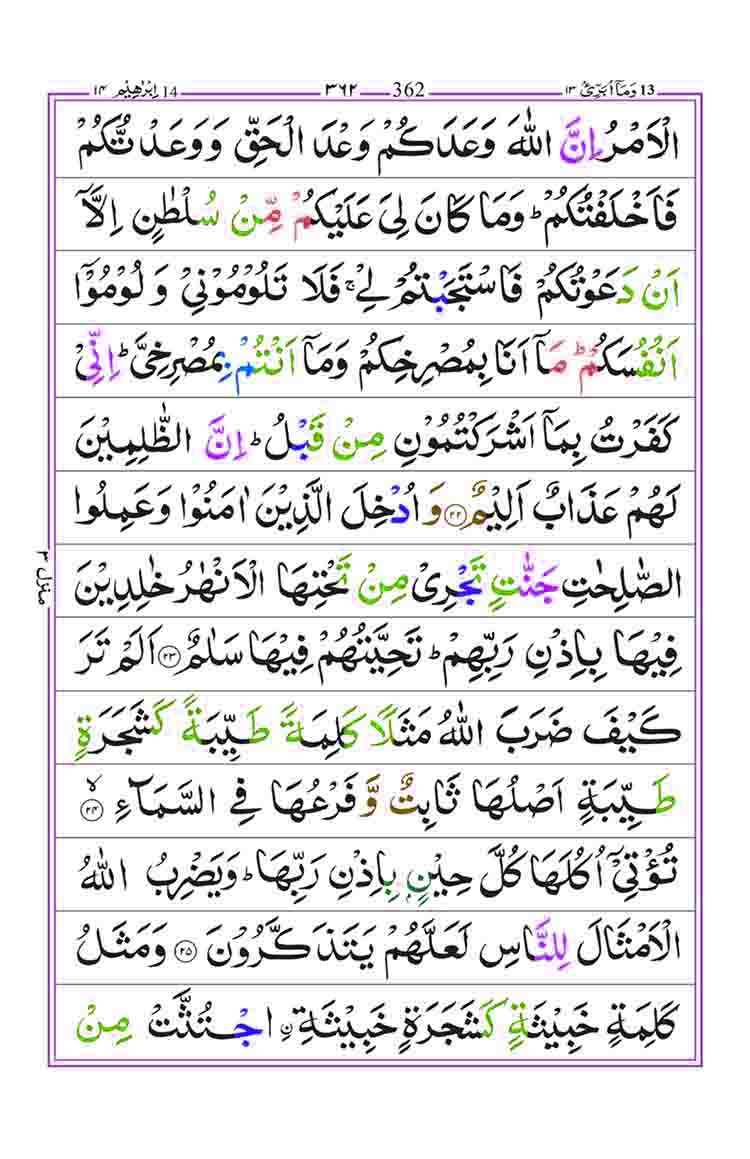 ابرٰهيم 14 ١٤ 362 ٣٦٢ وَمَآ اُبَرِّئُ 13 ١٣
الْاَمْرُ اِنَّ اللّٰهَ وَعَدَكُمْ وَعْدَ الْحَقِّ وَوَعَدْتُّكُمْ
فَاَخْلَفْتُكُمْ ؕ وَمَا كَانَ لِىَ عَلَيْكُمْ مِّنْ سُلْطٰنٍ اِلَّاۤ
اَنْ دَعَوْتُكُمْ فَاسْتَجَبْتُمْ لِىْ ۚ فَلَا تَلُوْمُوْنِىْ وَلُوْمُوْۤا
اَنْفُسَكُمْ ؕ مَاۤ اَنَا بِمُصْرِخِكُمْ وَمَاۤ اَنْتُمْ بِمُصْرِخِىَّ ؕ اِنِّىْ
كَفَرْتُ بِمَاۤ اَشْرَكْتُمُوْنِ مِنْ قَبْلُ ؕ اِنَّ الظّٰلِمِيْنَ
لَهُمْ عَذَابٌ اَلِيْمٌ ﴿۲۲﴾ وَاُدْخِلَ الَّذِيْنَ اٰمَنُوْا وَعَمِلُوا
الصّٰلِحٰتِ جَنّٰتٍ تَجْرِىْ مِنْ تَحْتِهَا الْاَنْهٰرُ خٰلِدِيْنَ
فِيْهَا بِاِذْنِ رَبِّهِمْ ؕ تَحِيَّتُهُمْ فِيْهَا سَلٰمٌ ﴿۲۳﴾ اَلَمْ تَرَ
كَيْفَ ضَرَبَ اللّٰهُ مَثَلًا كَلِمَةً طَيِّبَةً كَشَجَرَةٍ
طَيِّبَةٍ اَصْلُهَا ثَابِتٌ وَّفَرْعُهَا فِى السَّمَآءِ ۙ ﴿۲۴﴾
تُؤْتِىْۤ اُكُلَهَا كُلَّ حِيْنٍۭ بِاِذْنِ رَبِّهَا ؕ وَيَضْرِبُ اللّٰهُ
الْاَمْثَالَ لِلنَّاسِ لَعَلَّهُمْ يَتَذَكَّرُوْنَ ﴿۲۵﴾ وَمَثَلُ
كَلِمَةٍ خَبِيْثَةٍ كَشَجَرَةٍ خَبِيْثَةِ ۟ اجْتُثَّتْ مِنْ
منزل ٣